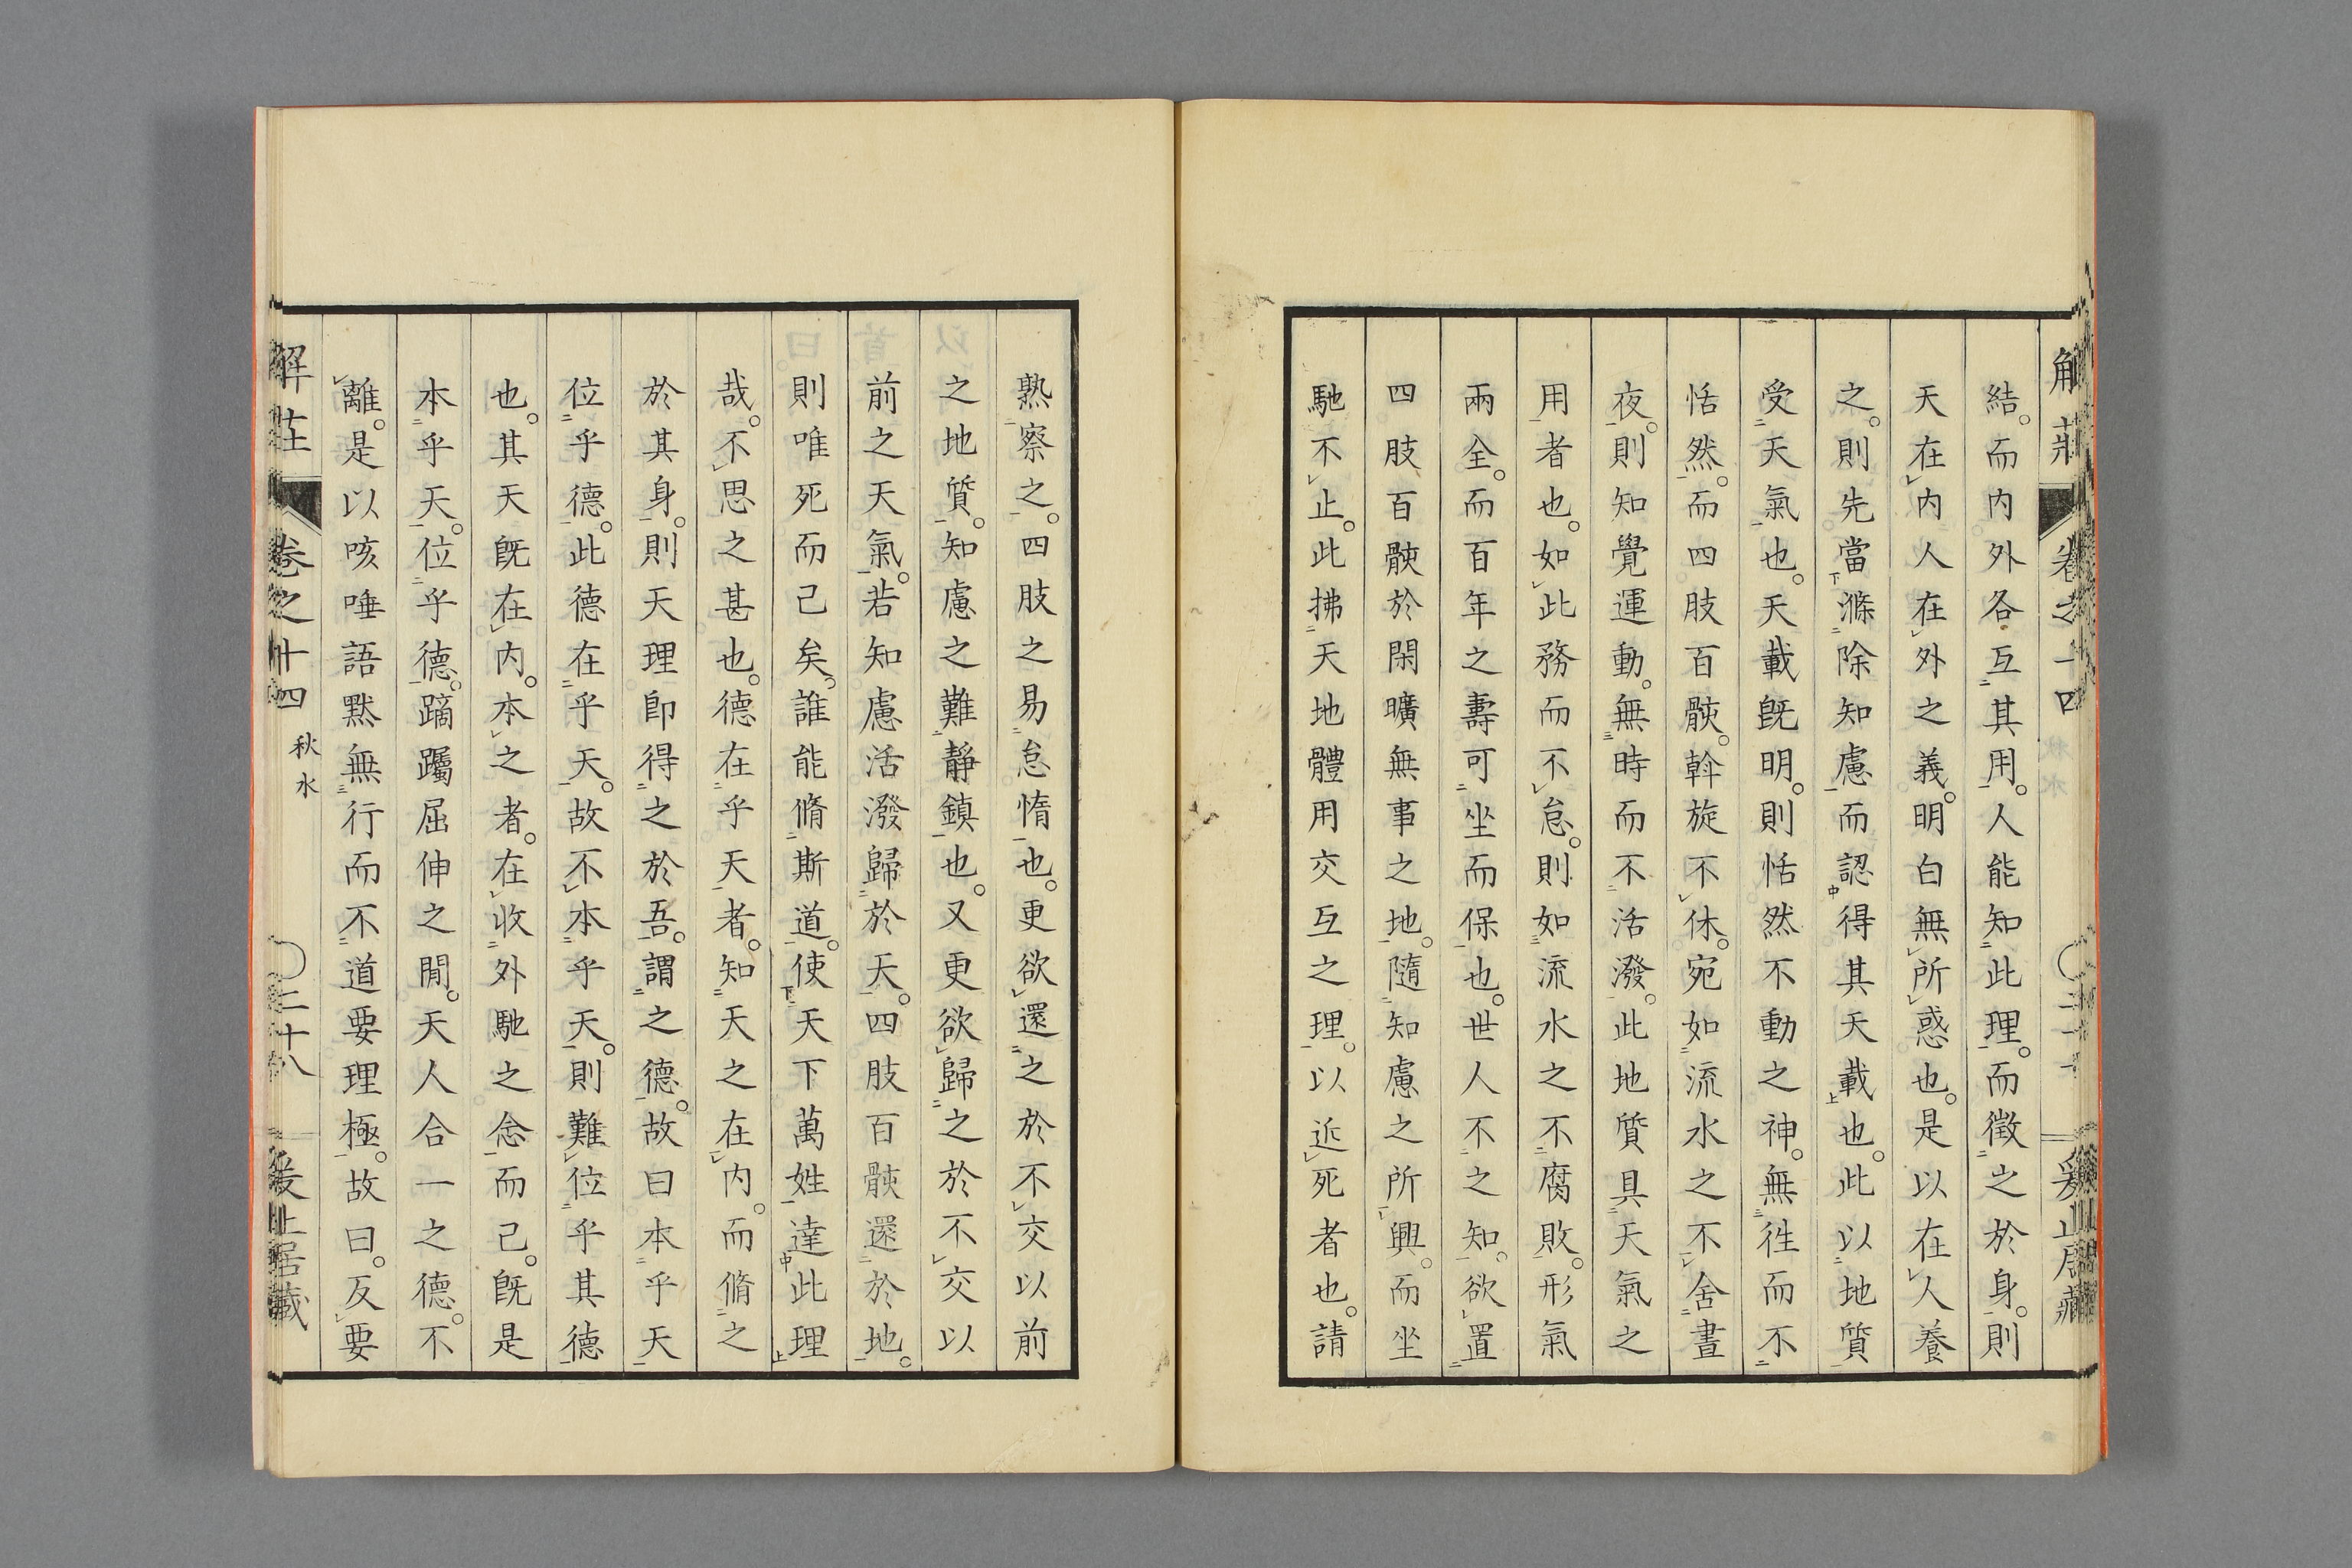 結。而内外各互其用。人能知此理。而徴之於身。則
天在内人在外之義。明白無所惑也。是以在人養
之。則先當滌除知慮而認得其天載也。此以地質
受天氣也。天載既明。則恬然不動之神。無徃而不
恬然。而四肢百骸。斡旋不休。宛如流水之不舍晝
夜。則知覺運動。無時而不活潑。此地質具天氣之
用者也。如此務而不怠。則如流水之不腐敗。形氣
兩全。而百年之壽可坐而保也。世人不之知。欲置
四肢百骸於閑曠無事之地。隨知慮之所興。而坐
馳不止。此拂天地體用交互之理。以近死者也。請
熟察之。四肢之易怠惰也。更欲還之於不交以前
之地質。知慮之難靜鎮也。又更欲歸之於不交以
前之天氣。若知慮活潑歸於天。四肢百骸還於地。
則唯死而已矣。誰能脩斯道。使天下萬姓達此理
哉。不思之甚也。德在乎天者。知天之在内。而脩之
於其身。則天理即得之於吾。謂之德。故曰本乎天
位乎德。此德在乎天。故不本乎天。則難位乎其德
也。其天既在内。本之者。在收外馳之念而已。既是
本乎天。位乎德。蹢躅屈伸之間。天人合一之德。不
離。是以咳唾語默無行而不道要理極。故曰。反要
解莊 卷之十四 秋水 二十八